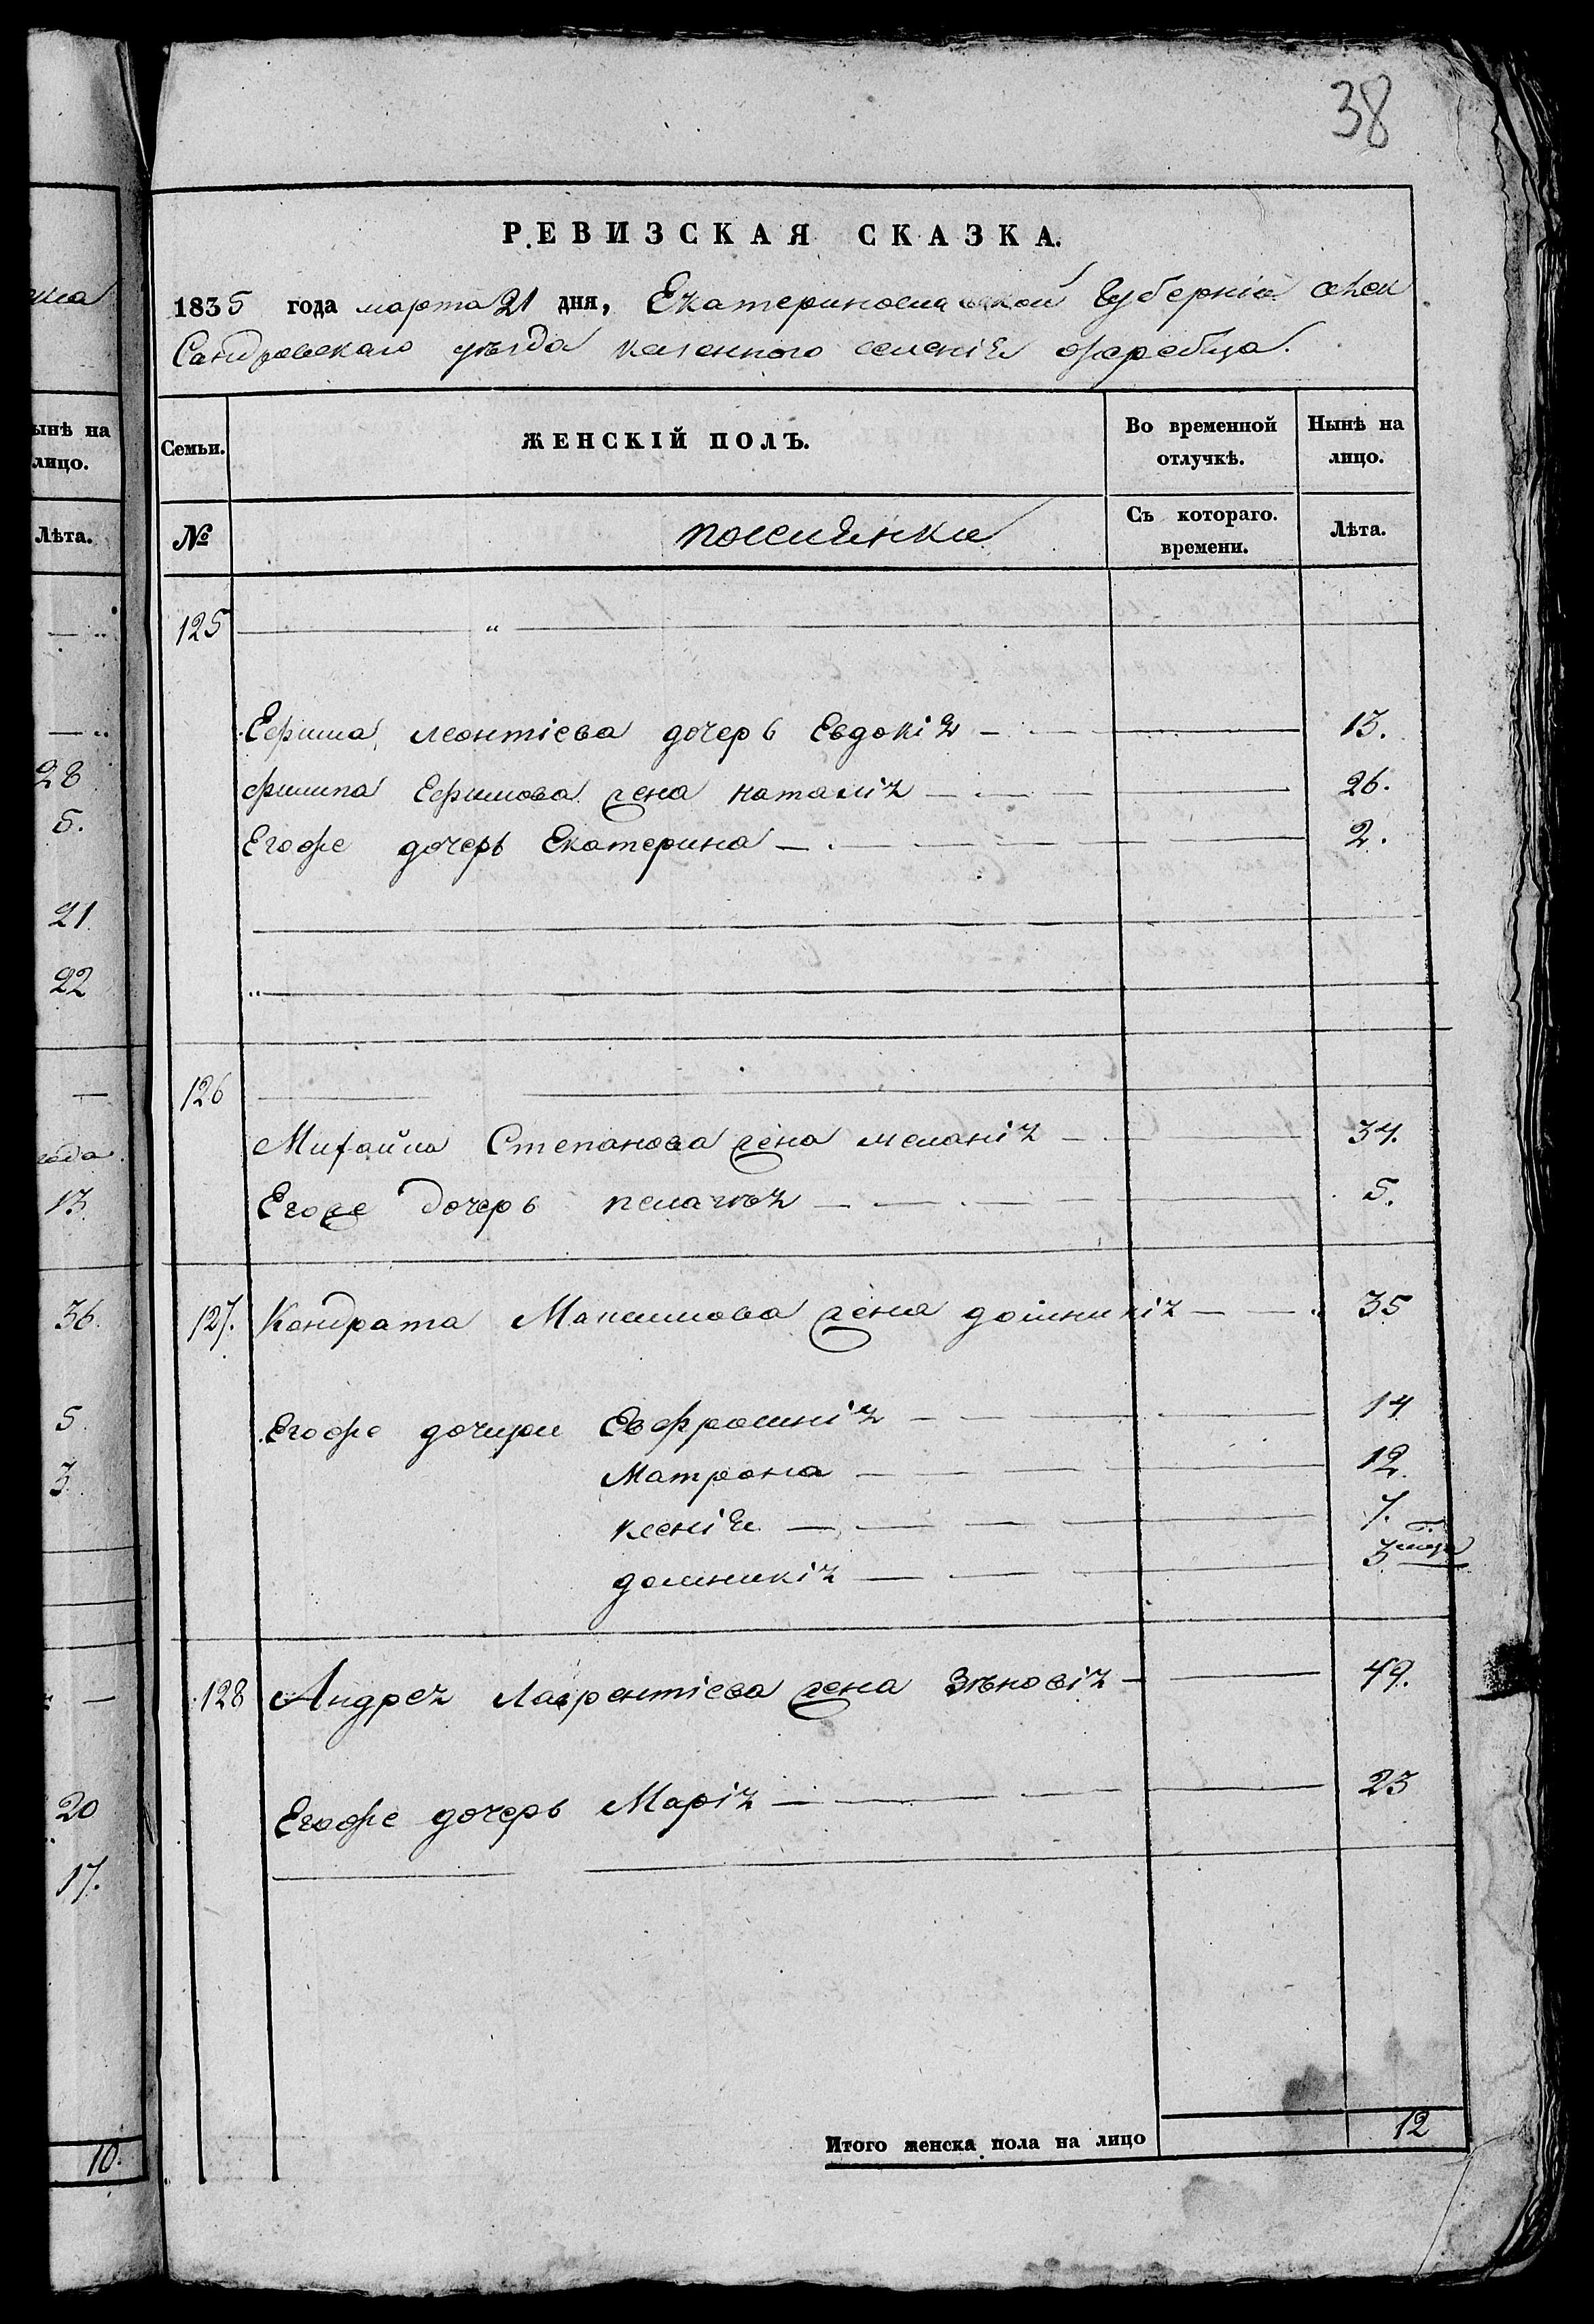 38
РЕВИЗСКАЯ СКАЗКА.
1835 года марта 21 дня, Екатеринославской Губерніи Алек
Сандровскаго уѣзда казенного селенія Жеребца.
Семьи.
ЖЕНСКІЙ ПОЛЪ.
Во временной отлучкѣ.
Нынѣ на лицо.
№
поселянки
Съ котораго. времени.
Лѣта.
125 "
Ефима леонтіева дочерь Евдокія 13.
филипа Ефимова жена наталія 26.
Егоже дочерь Екатерина 2.
"
126
Михайла Степанова жена меланія 37.
Егоже дочерь пелагѣя 5.
127. Кондрата Максимова жена домникія 35
Егоже дочири Евфросинія 14
Матрона 12.
ксенія 7.
домникія 3
128 Андрея Лаврентіева жена Зѣновія 49.
Егоже дочерь Марія 23
Итого женска пола на лицо 12
ынѣ на
лицо.
Лѣта.
28
5.
21.
22
года.
13.
36.
5.
3.
20
17.
10.